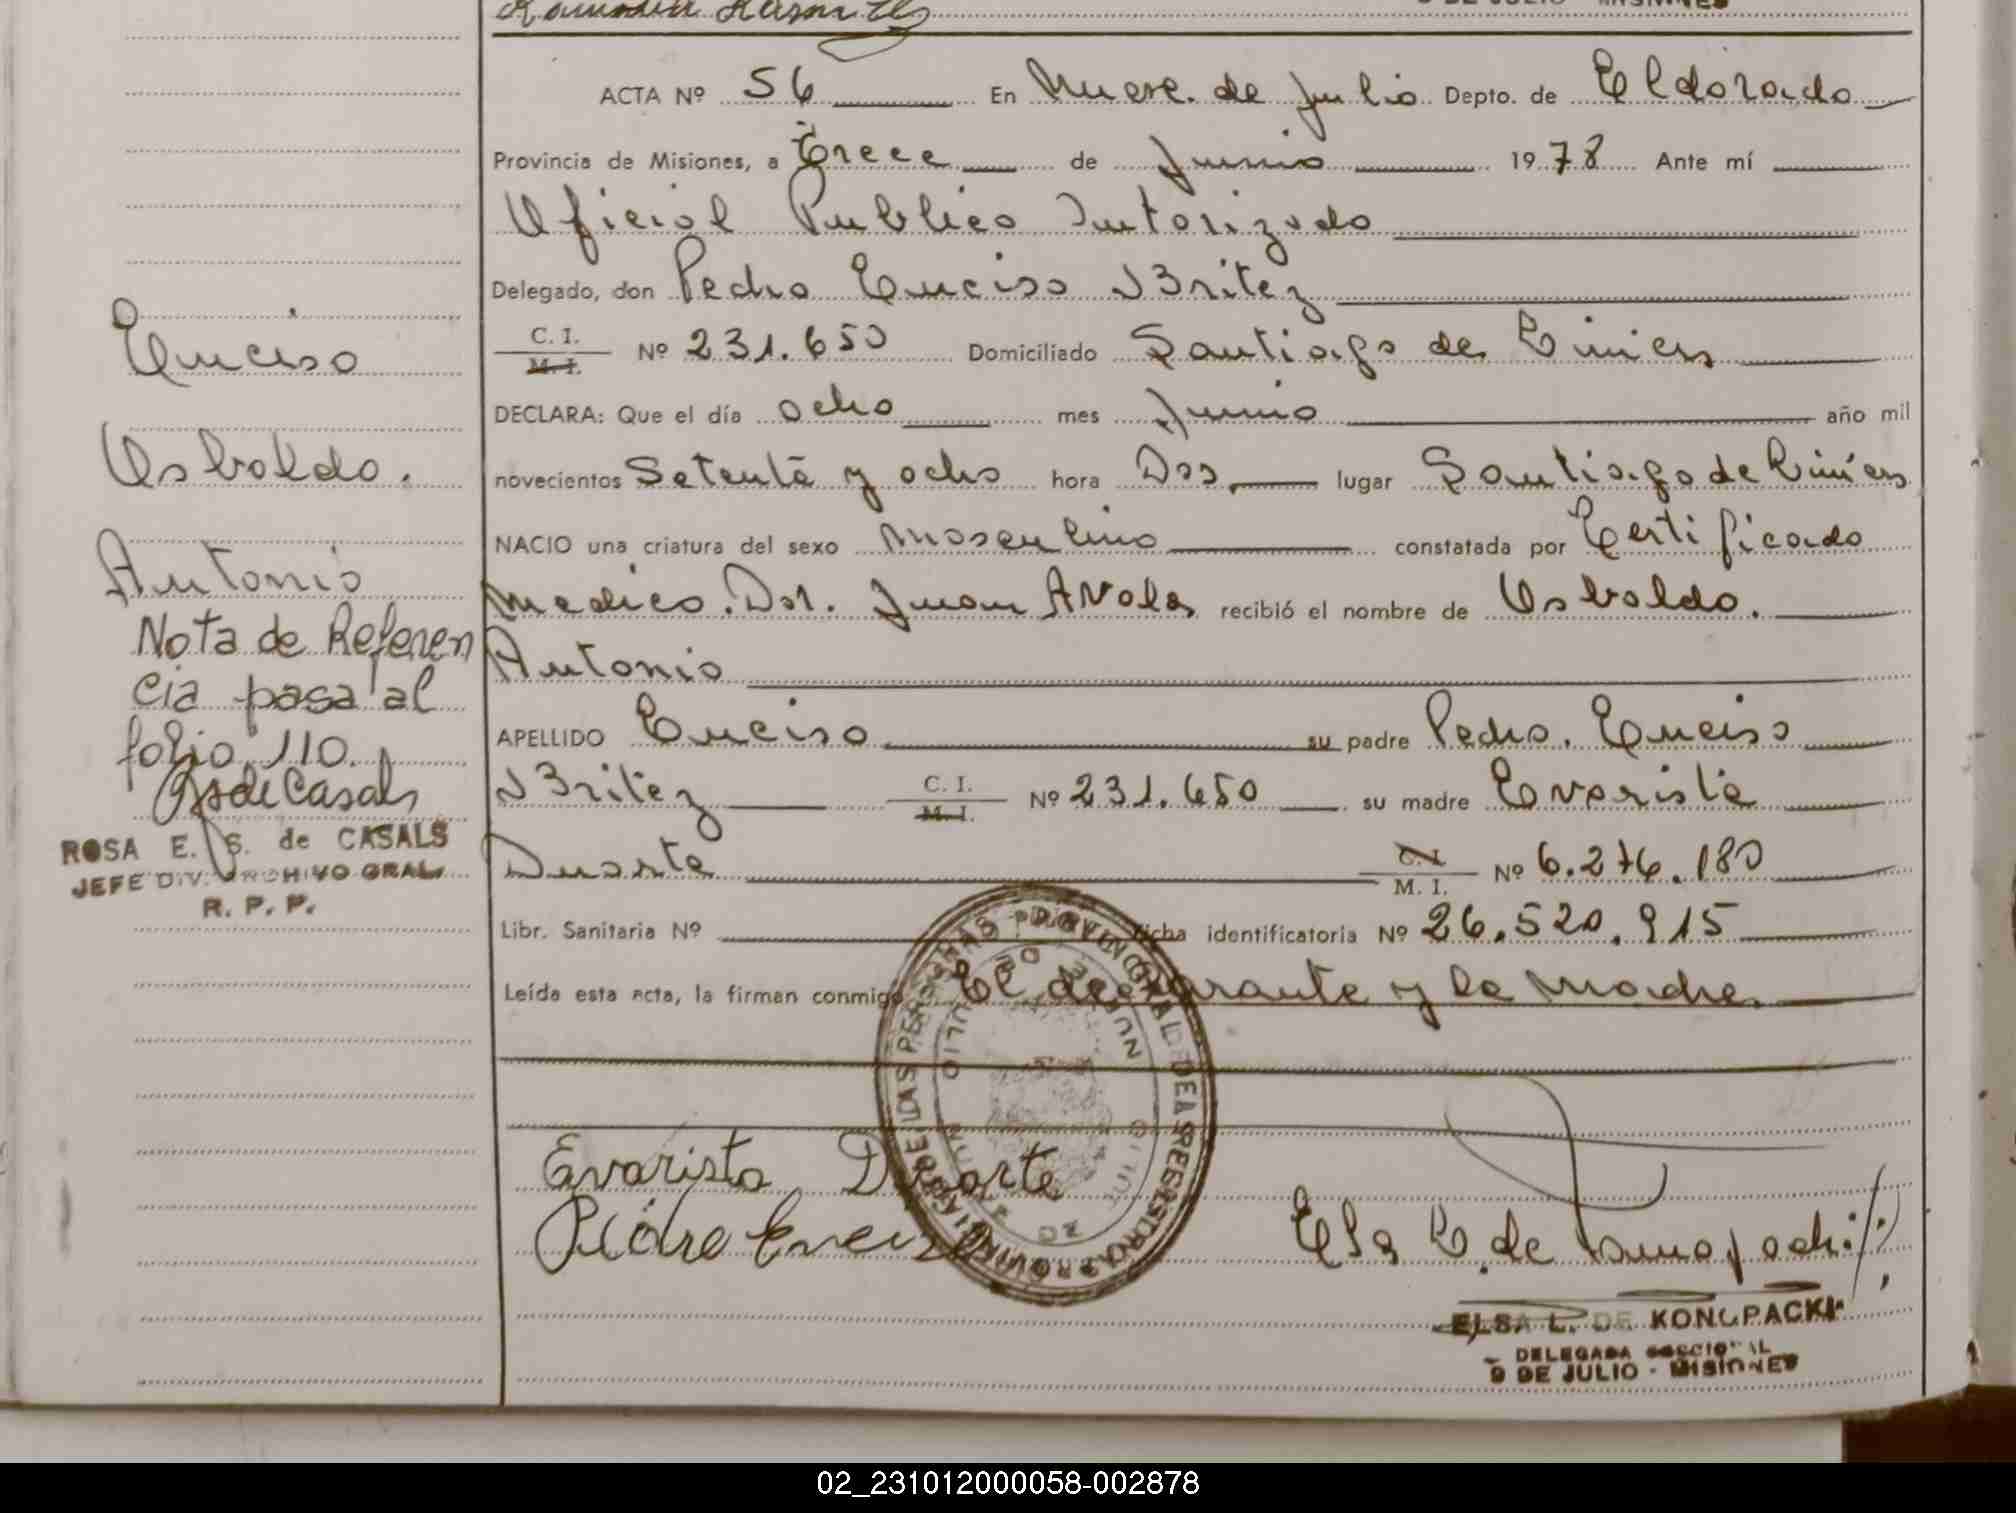 ACTA Nº 56 En Nueve de Julio Depto. de Eldorado
Provincia de Misiones, a Trece de Junio 1978 Ante mí
Oficial Publico Autorizado
Delegado, don Pedro Enciso Britez
C. I. M. I. Nº 231.650 Domiciliado Santiago de Liniers
DECLARA: Que el día ocho mes Junio año mil
novecientos Setenta y ocho hora Dos lugar Santiago de Liniers
NACIO una criatura del sexo Masculino constatada por Certificado
Medico. Dor. Juan Avola recibió el nombre de Osbaldo.
Antonio
APELLIDO Enciso su padre Pedro. Enciso
Britez C. I. M. I. Nº 231.650 su madre Evarista
Duarte C. I. M. I. Nº 6.276.180
Libr. Sanitaria Nº ficha identificatoria Nº 26.520.915
Leída esta acta, la firman conmigo El declarante y la Madre.
Evarista Duarte
Pedro Enciso
Elsa L. de Konopacki
ELSA L. DE KONOPACKI
DELEGADA SECCIONAL
9 DE JULIO - MISIONES
Enciso
Osbaldo.
Antonio
Nota de Referen
cia pasa al
folio 110.
RSdeCasals
ROSA E. S. de CASALS
JEFE DIV. ARCHIVO GRAL.
R. P. P.
NUEVE DE JULIO
02_231012000058-002878